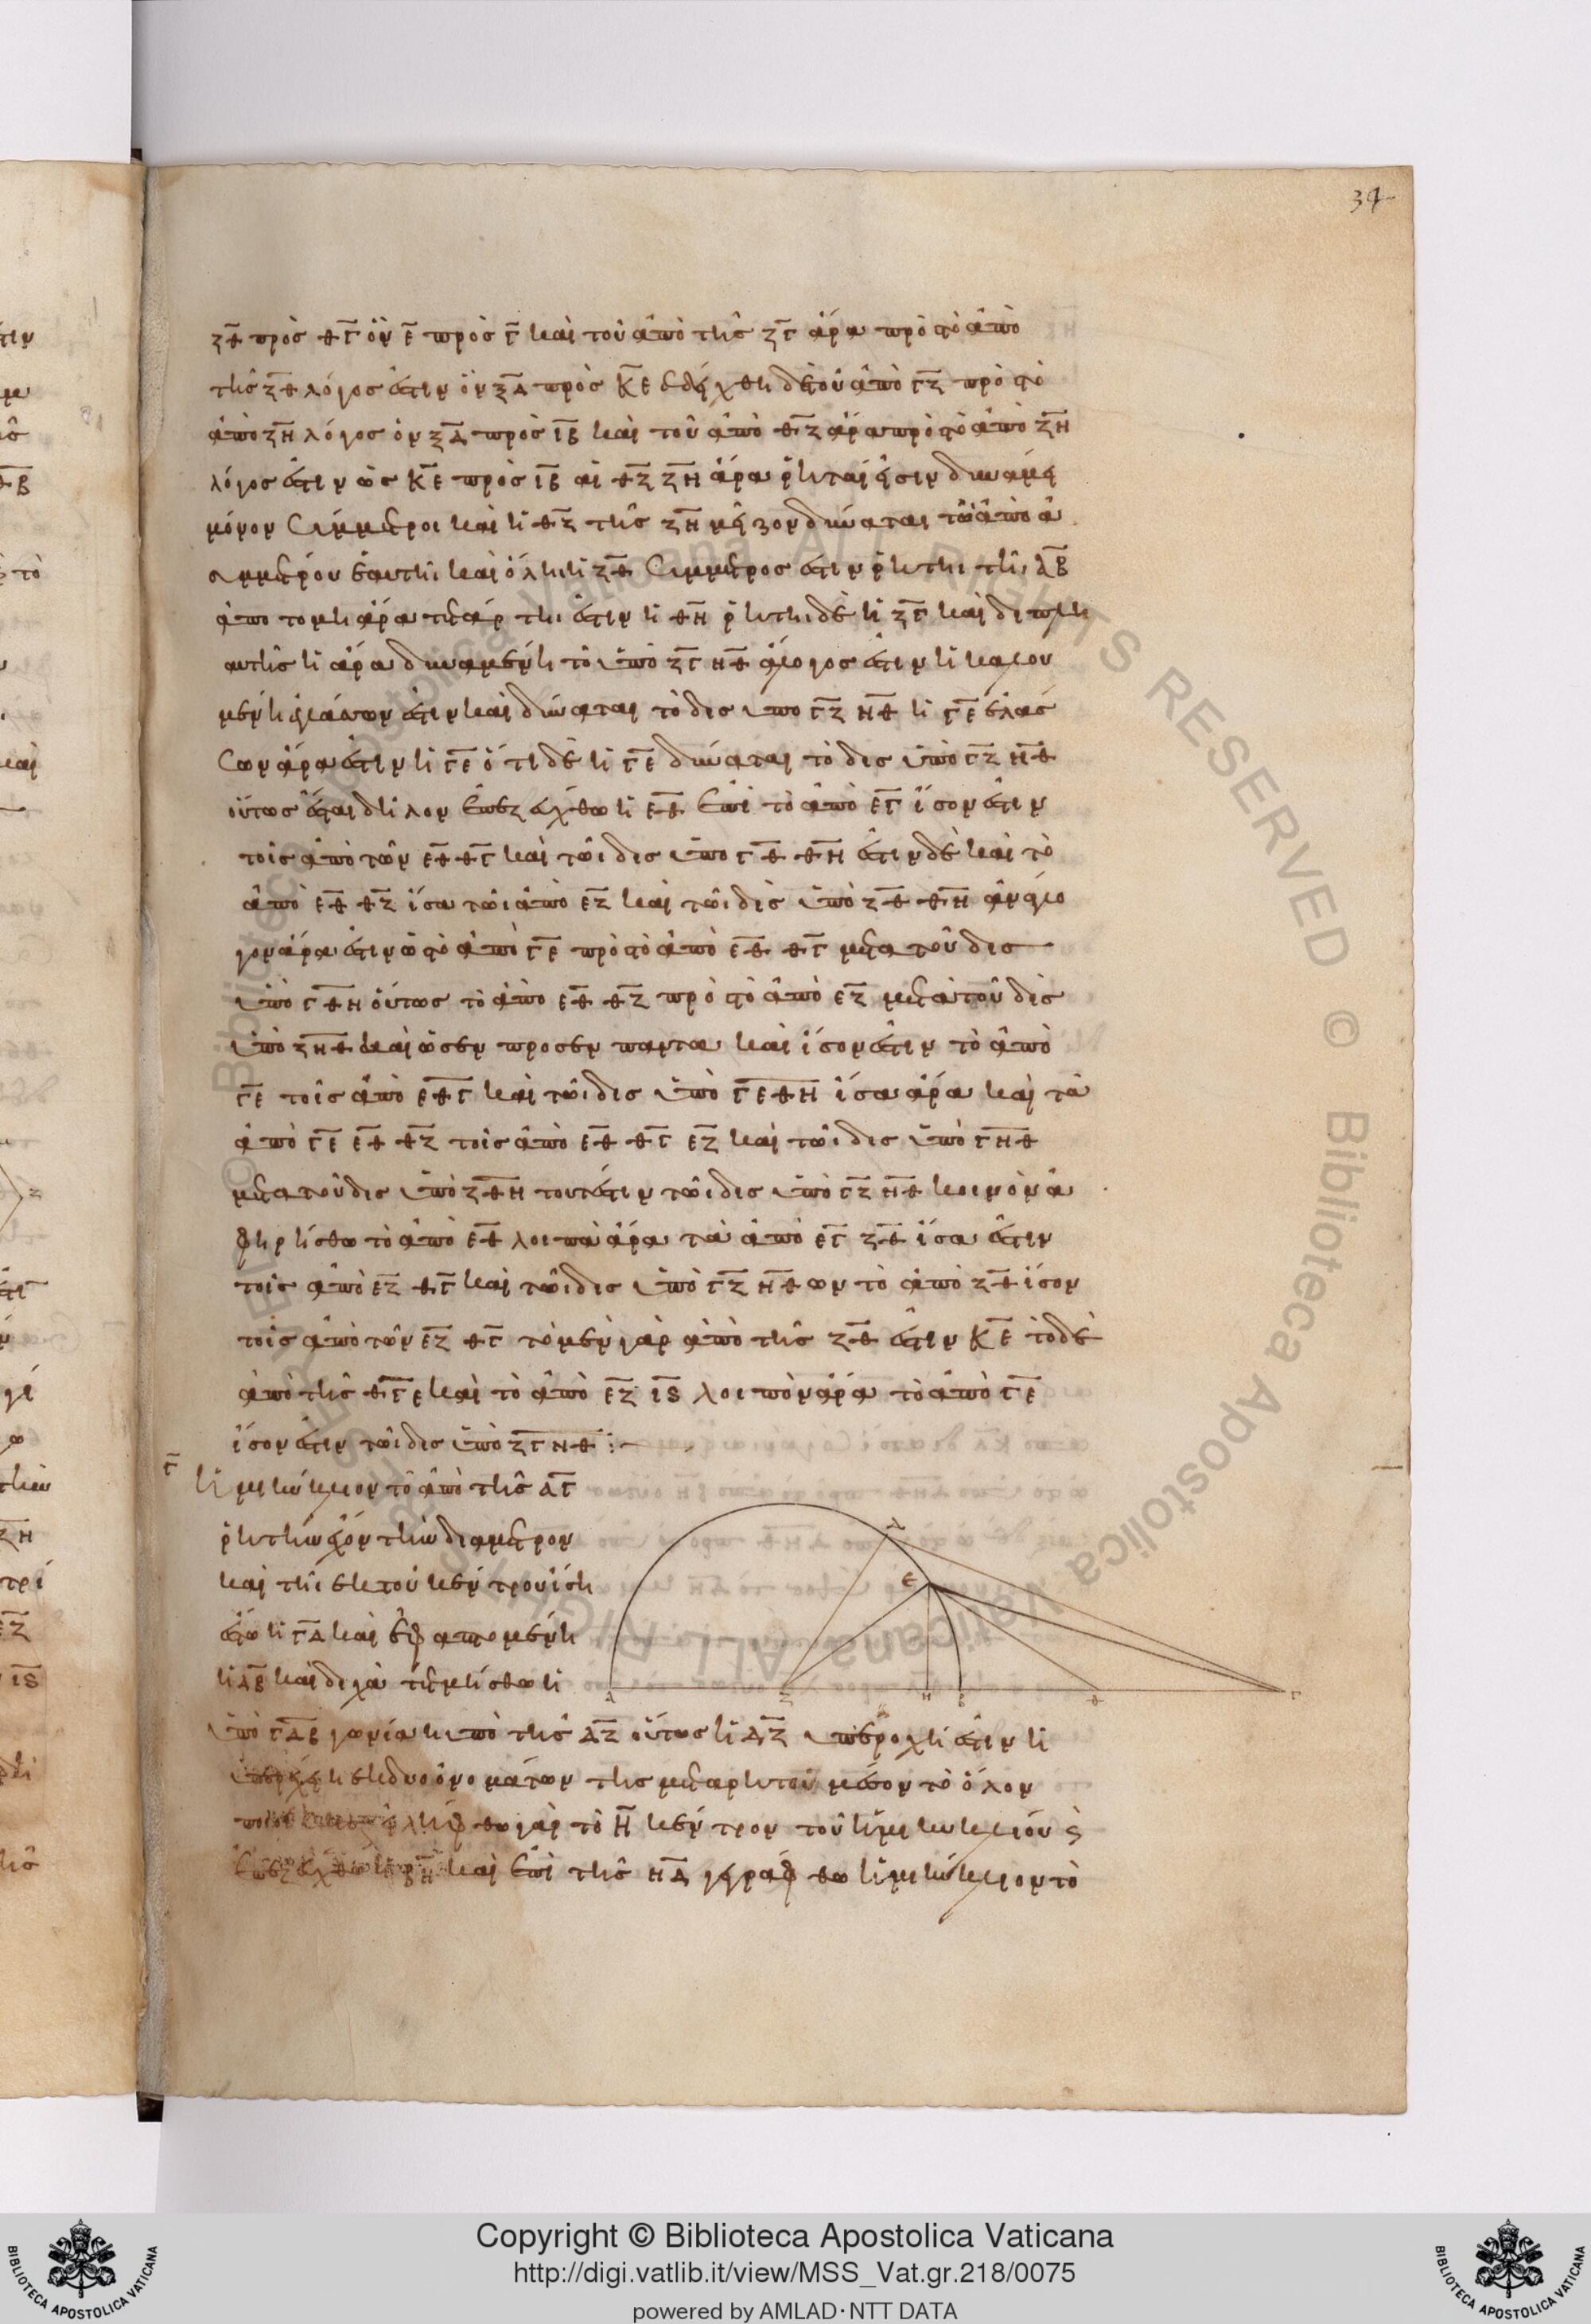 34
ΖΘ πρὸς ΘΓ ὃν Ε πρὸς Γ καὶ τοῦ ἀπὸ τῆς ΖΓ ἄρα πρὸς τὸ ἀπὸ
τῆς ΖΘ λόγος ἐστὶν ὃν ΞΔ πρὸς ΚΕ ἐδείχθη δὲ τοῦ ἀπὸ ΓΖ πρὸς τὸ
ἀπὸ ΖΗ λόγος ὃν ΞΔ πρὸς ΙΒ καὶ τοῦ ἀπὸ ΘΖ ἄρα πρὸς τὸ ἀπὸ ΖΗ
λόγος ἐστὶν ὡς ΚΕ πρὸς ΙΒ αἱ ΘΖ ΖΗ ἄρα ῥηταί εἰσιν δυνάμει
μόνον σύμμετροι καὶ ἡ ΘΖ τῆς ΖΗ μεῖζον δύναται τῶι ἀπὸ ἀ
συμμέτρου ἑαυτῆι καὶ ὅλη ἡ ΖΘ σύμμετρος ἐστιν ῥητῆι τῆι ΑΒ
ἀποτομὴ ἄρα τετάρτη ἐστιν ἡ ΘΗ ῥητὴ δὲ ἡ ΖΓ καὶ διπλῆ
αὐτῆς ἡ ἄρα δυναμένη τὸ ὑπὸ ΖΓ ΗΘ ἄλογος ἐστιν ἡ καλου
μένη ἐλάττων ἐστιν καὶ δύναται τὸ δὶς ὑπὸ ΓΖ ΗΘ ἡ ΓΕ ἐλάσ
σων ἄρα ἐστὶν ἡ ΓΕ ὅτι δὲ ἡ ΓΕ δύναται τὸ δὶς ὑπὸ ΓΖ ΗΘ
οὕτως ἔσται δῆλον ἐπεζεύχθω ἡ ΕΘ ἐπεὶ τὸ ἀπὸ ΕΓ ἴσον ἐστιν
τοῖς ἀπὸ τῶν ΕΘ ΘΓ καὶ τῶι δὶς ὑπὸ ΓΘ ΘΗ ἐστιν δὲ καὶ τὸ
ἀπὸ ΕΘ ΘΖ ἴσα τῶι ἀπὸ ΕΖ καὶ τῶι δὶς ὑπὸ ΖΘ ΘΗ ἀνάλο
γον ἄρα ἐστιν ὡς τὸ ἀπὸ ΓΕ πρὸς τὸ ἀπὸ ΕΘ ΘΓ μετὰ τοῦ δὶς
ὑπὸ ΓΘΗ οὕτως τὸ ἀπὸ ΕΘ ΘΖ πρὸς τὸ ἀπὸ ΕΖ μετὰ τοῦ δὶς
ὑπὸ ΖΗΘ καὶ ὡς ἓν πρὸς ἓν πάντα καὶ ἴσον ἐστιν τὸ ἀπὸ
ΓΕ τοῖς ἀπὸ ΕΘΓ καὶ τῶι δὶς ὑπὸ ΓΕΘΗ ἴσα ἄρα καὶ τὰ
ἀπὸ ΓΕ ΕΘ ΘΖ τοῖς ἀπὸ ΕΘ ΘΓ ΕΖ καὶ τῶι δὶς ὑπὸ ΓΗΘ
μετὰ τοῦ δὶς ὑπὸ ΖΘΗ τουτέστιν τῶι δὶς ὑπὸ ΓΖ ΗΘ κοινὸν ἀ
φηρήσθω τὸ ἀπὸ ΕΘ λοιπὰ ἄρα τὰ ἀπὸ ΕΓ ΖΘ ἴσα ἐστιν
τοῖς ἀπὸ ΕΖ ΘΓ καὶ τῶι δὶς ὑπὸ ΓΖ ΗΘ ων τὸ ἀπὸ ΖΘ ἴσον
τοῖς ἀπὸ τῶν ΕΖ ΘΓ τὸ μὲν γὰρ ἀπὸ τῆς ΖΘ ἐστιν ΚΕ τὸ δὲ
ἀπὸ τῆς ΘΓ ε καὶ τὸ ἀπὸ ΕΖ Ις λοιπὸν ἄρα τὸ ἀπὸ ΓΕ
ἴσον ἐστιν τῶι δὶς ὑπὸ ΖΓ ΗΘ :
Γ
ἡμικύκλιον τὸ ἀπὸ τῆς ΑΓ
ῥητὴν ἔχον τὴν διάμετρον
καὶ τῆι ἐκ τοῦ κέντρου ἴση
ἔστω ἡ ΓΔ καὶ ἐφαπτομένη
ἡ ΔΒ καὶ δίχα τετμήσθω ἡ
ὑπὸ ΓΔΒ γωνία ὑπὸ τῆς ΔΖ οὕτως ἡ ΔΖ ὑπεροχή ἐστιν ἡ
ὑπερέχει ἐκ δυο ὀνομάτων τῆς μετὰ ῥητοῦ μέσον τὸ ὅλον
γὰρ τὸ Η κέντρον τοῦ ἡμικυκλίου ς
ἐπεζεύχθω ἡ ΒΗ καὶ ἐπὶ τῆς ΗΔ γεγράφθω ἡμικύκλιον τὸ
Δ
Ε
Α Ζ Η Β Θ Γ
Copyright © Biblioteca Apostolica Vaticana
http://digi.vatlib.it/view/MSS_Vat.gr.218/0075
powered by AMLAD·NTT DATA